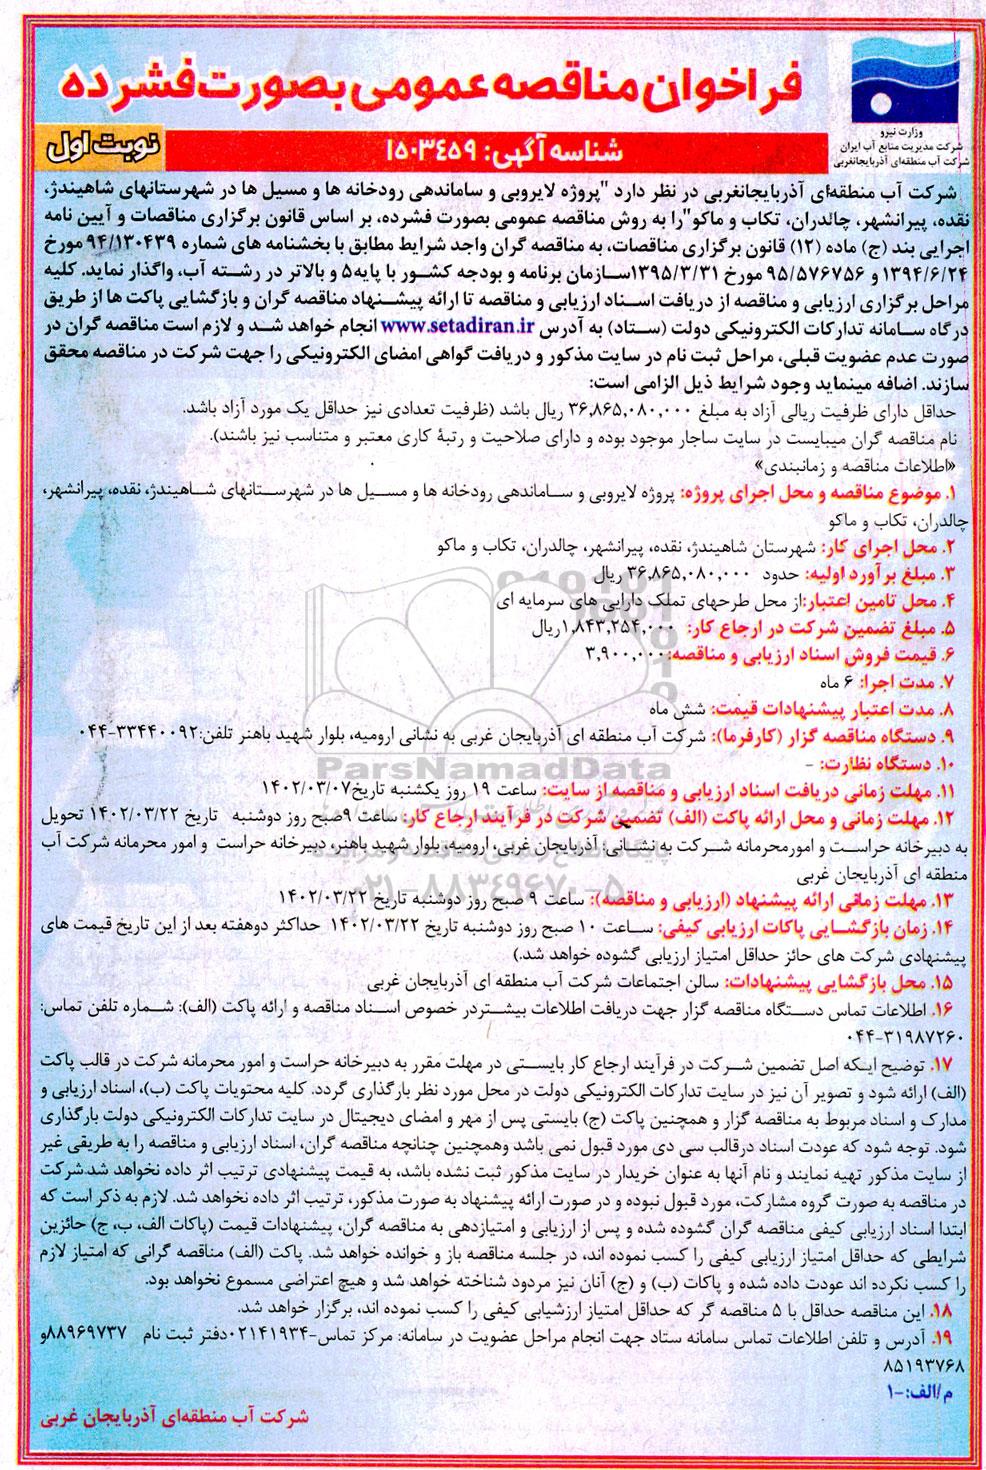 فراخوان مناقصه عمومی بصورت فشرده
وزارت نیرو
شرکت مدیریت منابع آب ایران
شرکت آب منطقه‌ای آذربایجانغربی
شناسه آگهی: ۱۵۰۳۴۵۹
نوبت اول
شرکت آب منطقه‌ای آذربایجانغربی در نظر دارد "پروژه لایروبی و ساماندهی رودخانه ها و مسیل ها در شهرستانهای شاهیندژ،
نقده، پیرانشهر، چالدران، تکاب و ماکو"را به روش مناقصه عمومی بصورت فشرده، بر اساس قانون برگزاری مناقصات و آیین نامه
اجرایی بند (ج) ماده (۱۲) قانون برگزاری مناقصات، به مناقصه گران واجد شرایط مطابق با بخشنامه های شماره ۹۴/۱۳۰۴۳۹ مورخ
۱۳۹۴/۶/۲۴ و ۹۵/۵۷۶۷۵۶ مورخ ۱۳۹۵/۳/۳۱سازمان برنامه و بودجه کشور با پایه۵ و بالاتر در رشته آب، واگذار نماید. کلیه
مراحل برگزاری ارزیابی و مناقصه از دریافت اسناد ارزیابی و مناقصه تا ارائه پیشنهاد مناقصه گران و بازگشایی پاکت ها از طریق
درگاه سامانه تدارکات الکترونیکی دولت (ستاد) به آدرس www.setadiran.ir انجام خواهد شد و لازم است مناقصه گران در
صورت عدم عضویت قبلی، مراحل ثبت نام در سایت مذکور و دریافت گواهی امضای الکترونیکی را جهت شرکت در مناقصه محقق
سازند. اضافه مینماید وجود شرایط ذیل الزامی است:
حداقل دارای ظرفیت ریالی آزاد به مبلغ ۳۶,۸۶۵,۰۸۰,۰۰۰ ریال باشد (ظرفیت تعدادی نیز حداقل یک مورد آزاد باشد.
نام مناقصه گران میبایست در سایت ساجار موجود بوده و دارای صلاحیت و رتبۀ کاری معتبر و متناسب نیز باشند).
«اطلاعات مناقصه و زمانبندی»
۱. موضوع مناقصه و محل اجرای پروژه: پروژه لایروبی و ساماندهی رودخانه ها و مسیل ها در شهرستانهای شاهیندژ، نقده، پیرانشهر،
چالدران، تکاب و ماکو
۲. محل اجرای کار: شهرستان شاهیندژ، نقده، پیرانشهر، چالدران، تکاب و ماکو
۳. مبلغ برآورد اولیه: حدود ۳۶,۸۶۵,۰۸۰,۰۰۰ ریال
۴. محل تامین اعتبار:از محل طرحهای تملک دارایی های سرمایه ای
۵. مبلغ تضمین شرکت در ارجاع کار: ۱,۸۴۳,۲۵۴,۰۰۰ریال
۶. قیمت فروش اسناد ارزیابی و مناقصه:۳,۹۰۰,۰۰۰
۷. مدت اجرا: ۶ ماه
۸. مدت اعتبار پیشنهادات قیمت: شش ماه
۹. دستگاه مناقصه گزار (کارفرما): شرکت آب منطقه ای آذربایجان غربی به نشانی ارومیه، بلوار شهید باهنر تلفن:۰۴۴-۳۳۴۴۰۰۹۲
۱۰. دستگاه نظارت: -
ParsNamadData
۱۱. مهلت زمانی دریافت اسناد ارزیابی و مناقصه از سایت: ساعت ۱۹ روز یکشنبه تاریخ۱۴۰۲/۰۳/۰۷
۱۲. مهلت زمانی و محل ارائه پاکت (الف) تضمین شرکت در فرآیند ارجاع کار: ساعت ۹صبح روز دوشنبه تاریخ ۱۴۰۲/۰۳/۲۲ تحویل
به دبیرخانه حراست و امورمحرمانه شرکت به نشانی: آذربایجان غربی، ارومیه، بلوار شهید باهنر، دبیرخانه حراست و امور محرمانه شرکت آب
منطقه ای آذربایجان غربی
۰۲۱-۸۸۳۴۹۶۷۰-۵
۱۳. مهلت زمانی ارائه پیشنهاد (ارزیابی و مناقصه): ساعت ۹ صبح روز دوشنبه تاریخ ۱۴۰۲/۰۳/۲۲
۱۴. زمان بازگشایی پاکات ارزیابی کیفی: ساعت ۱۰ صبح روز دوشنبه تاریخ ۱۴۰۲/۰۳/۲۲ حداکثر دوهفته بعد از این تاریخ قیمت های
پیشنهادی شرکت های حائز حداقل امتیاز ارزیابی گشوده خواهد شد.)
۱۵. محل بازگشایی پیشنهادات: سالن اجتماعات شرکت آب منطقه ای آذربایجان غربی
۱۶. اطلاعات تماس دستگاه مناقصه گزار جهت دریافت اطلاعات بیشتردر خصوص اسناد مناقصه و ارائه پاکت (الف): شماره تلفن تماس:
۰۴۴-۳۱۹۸۷۲۶۰
۱۷. توضیح اینکه اصل تضمین شرکت در فرآیند ارجاع کار بایستی در مهلت مقرر به دبیرخانه حراست و امور محرمانه شرکت در قالب پاکت
(الف) ارائه شود و تصویر آن نیز در سایت تدارکات الکترونیکی دولت در محل مورد نظر بارگذاری گردد. کلیه محتویات پاکت (ب)، اسناد ارزیابی و
مدارک و اسناد مربوط به مناقصه گزار و همچنین پاکت (ج) بایستی پس از مهر و امضای دیجیتال در سایت تدارکات الکترونیکی دولت بارگذاری
شود. توجه شود که عودت اسناد درقالب سی دی مورد قبول نمی باشد وهمچنین چنانچه مناقصه گران، اسناد ارزیابی و مناقصه را به طریقی غیر
از سایت مذکور تهیه نمایند و نام آنها به عنوان خریدار در سایت مذکور ثبت نشده باشد، به قیمت پیشنهادی ترتیب اثر داده نخواهد شد.شرکت
در مناقصه به صورت گروه مشارکت، مورد قبول نبوده و در صورت ارائه پیشنهاد به صورت مذکور، ترتیب اثر داده نخواهد شد. لازم به ذکر است که
ابتدا اسناد ارزیابی کیفی مناقصه گران گشوده شده و پس از ارزیابی و امتیازدهی به مناقصه گران، پیشنهادات قیمت (پاکات الف، ب، ج) حائزین
شرایطی که حداقل امتیاز ارزیابی کیفی را کسب نموده اند، در جلسه مناقصه باز و خوانده خواهد شد. پاکت (الف) مناقصه گرانی که امتیاز لازم
را کسب نکرده اند عودت داده شده و پاکات (ب) و (ج) آنان نیز مردود شناخته خواهد شد و هیچ اعتراضی مسموع نخواهد بود.
۱۸. این مناقصه حداقل با ۵ مناقصه گر که حداقل امتیاز ارزشیابی کیفی را کسب نموده اند، برگزار خواهد شد.
۱۹. آدرس و تلفن اطلاعات تماس سامانه ستاد جهت انجام مراحل عضویت در سامانه: مرکز تماس-۰۲۱۴۱۹۳۴دفتر ثبت نام ۸۸۹۶۹۷۳۷و
۸۵۱۹۳۷۶۸
م/الف:-۱
شرکت آب منطقه‌ای آذربایجان غربی